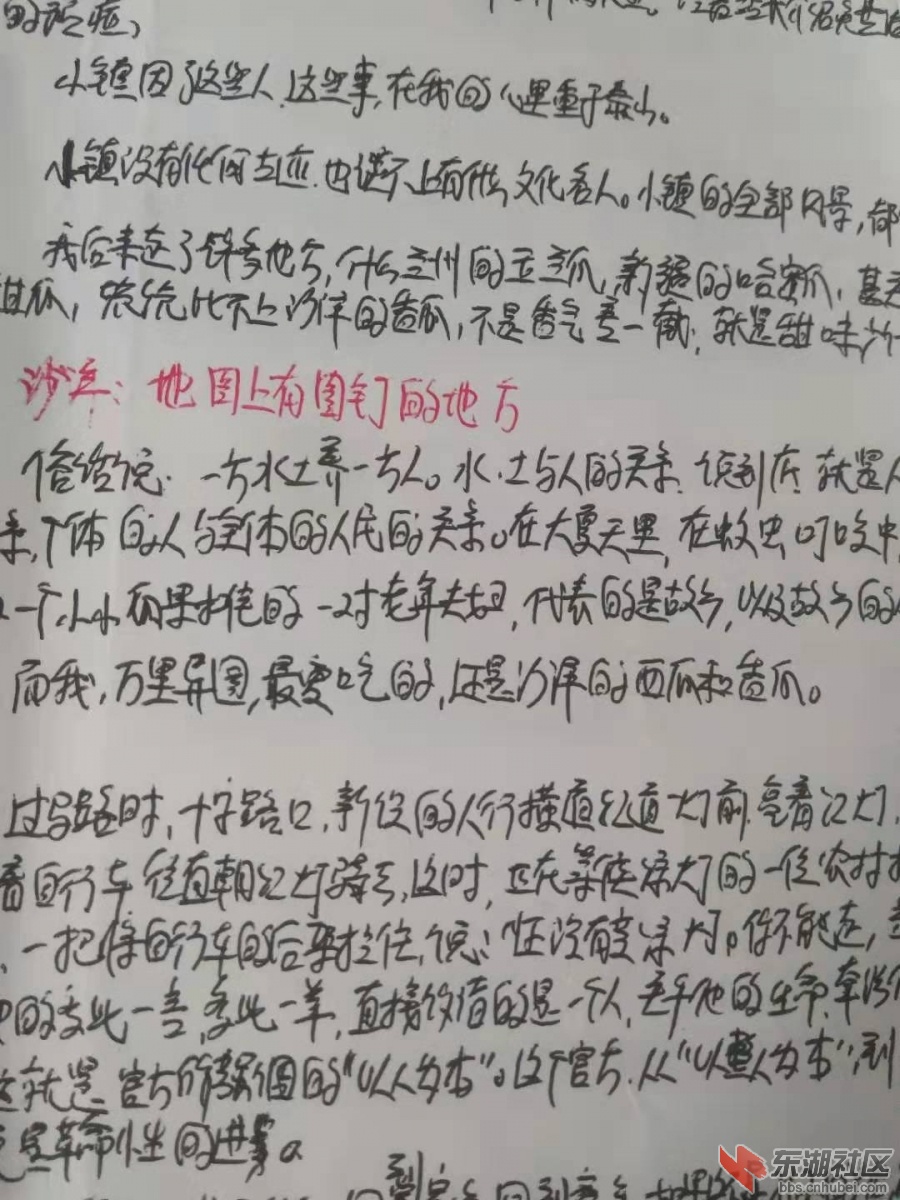 小镇因了这些人、这些事,在我的心里重于泰山。
小镇没有任何古迹,也谈不上有什么文化名人。小镇的全部风景,都
我后来走了许多地方,什么兰州的白兰瓜,新疆的哈密瓜,甚至
甜瓜,统统比不上沙洋的香瓜,不是香气差一截,就是甜味
沙洋:地图上有图钉的地方
俗话说:一方水土养一方人。水、土与人的关系,说到底,就是人
系,个体的人与全体的人民的关系。在大夏天里,在蚊虫叮咬中
一个小小瓜果摊的一对老年夫妇,代表的是故乡,以及故乡的
而我,万里异国,最爱吃的,还是沙洋的西瓜和香瓜。
过马路时,十字路口,新设的人行横道红道灯前,亮着红灯,
着自行车径直朝红灯骑去,这时,正在等候绿灯的一位农村
,一把将自行车的后架拉住,说:还没有变绿灯。你不能走,
的多此一言,多此一举,直接救借的是一个人,至乎他的生命,
这就是官方所渴图的“以人为本”。这个官方,从“以整人为本”,到
革命性的进步。
东湖社区
bbs.cnhubei.com